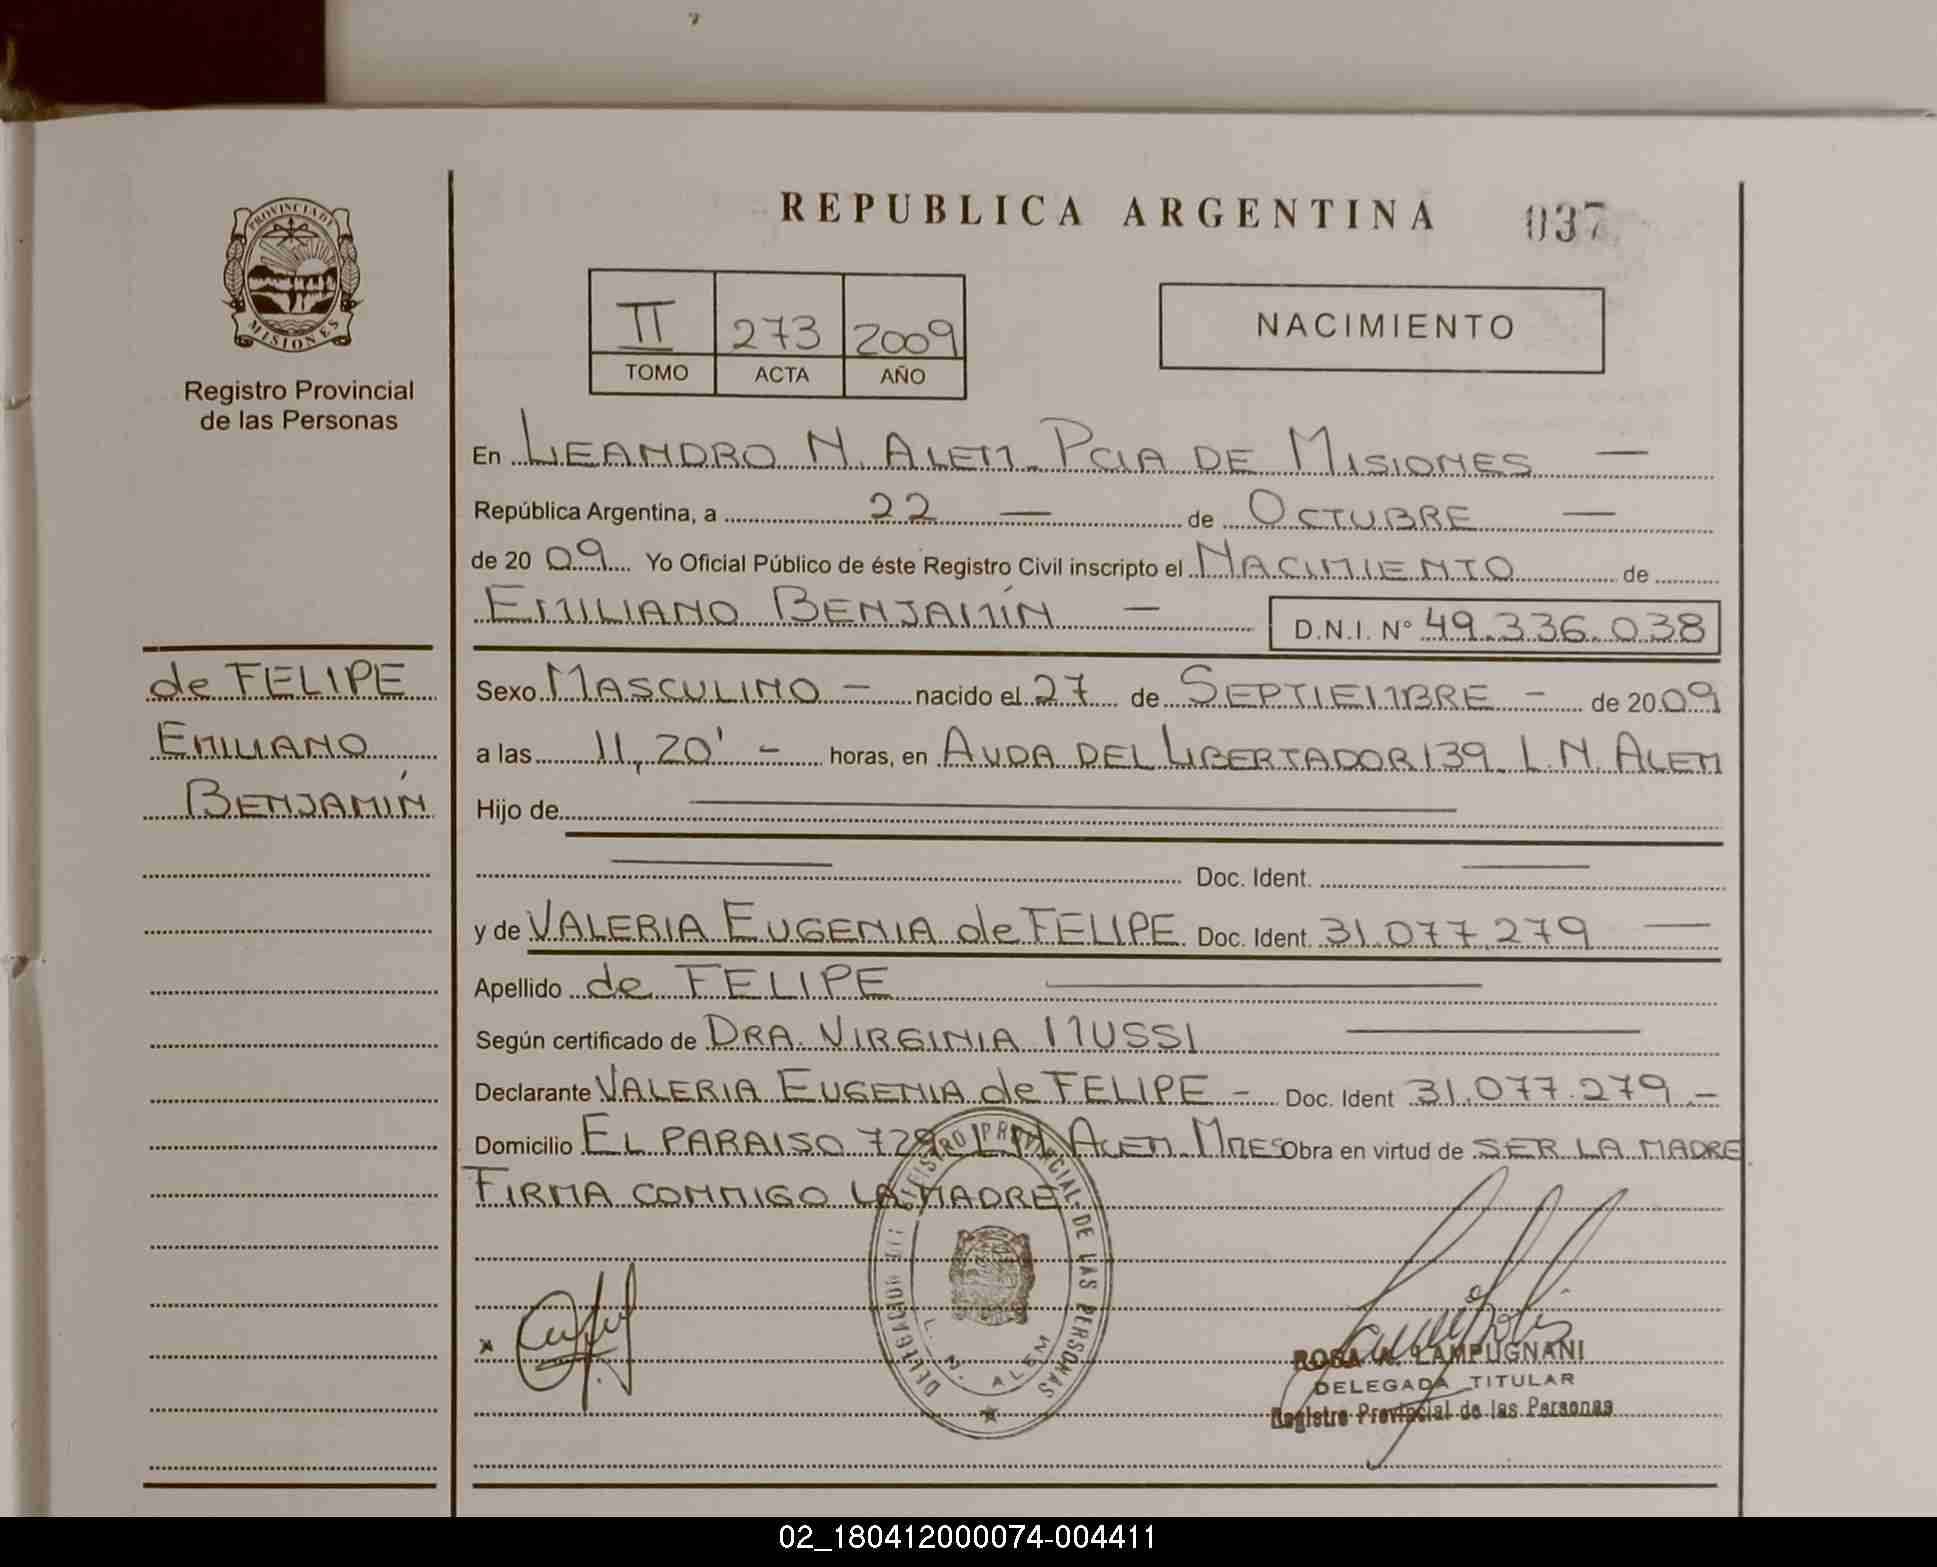 REPUBLICA ARGENTINA 037
PROVINCIA DE
MISIONES
Registro Provincial
de las Personas
II 273 2009
TOMO ACTA AÑO
NACIMIENTO
En LEANDRO N. ALEM PCIA DE MISIONES —
República Argentina, a 22 — de OCTUBRE —
de 20 09 Yo Oficial Público de éste Registro Civil inscripto el NACIMIENTO de
EMILIANO BENJAMÍN — D.N.I. Nº 49.336.038
de FELIPE
EMILIANO
BENJAMÍN
Sexo MASCULINO — nacido el 27 de SEPTIEMBRE - de 2009
a las 11,20' - horas, en AVDA DEL LIBERTADOR 139 L.N. ALEM
Hijo de
Doc. Ident.
y de VALERIA EUGENIA de FELIPE Doc. Ident. 31.077.279 —
Apellido de FELIPE
Según certificado de DRA. VIRGINIA MUSSI
Declarante VALERIA EUGENIA de FELIPE - Doc. Ident 31.077.279.-
Domicilio EL PARAISO 729 L.N. ALEM MNES Obra en virtud de SER LA MADRE
FIRMA CONMIGO LA MADRE
REGISTRO PROVINCIAL DE LAS PERSONAS
L. N. ALEM
ROSA A. LAMPUGNANI
DELEGADA TITULAR
Registro Provincial de las Personas
02_180412000074-004411